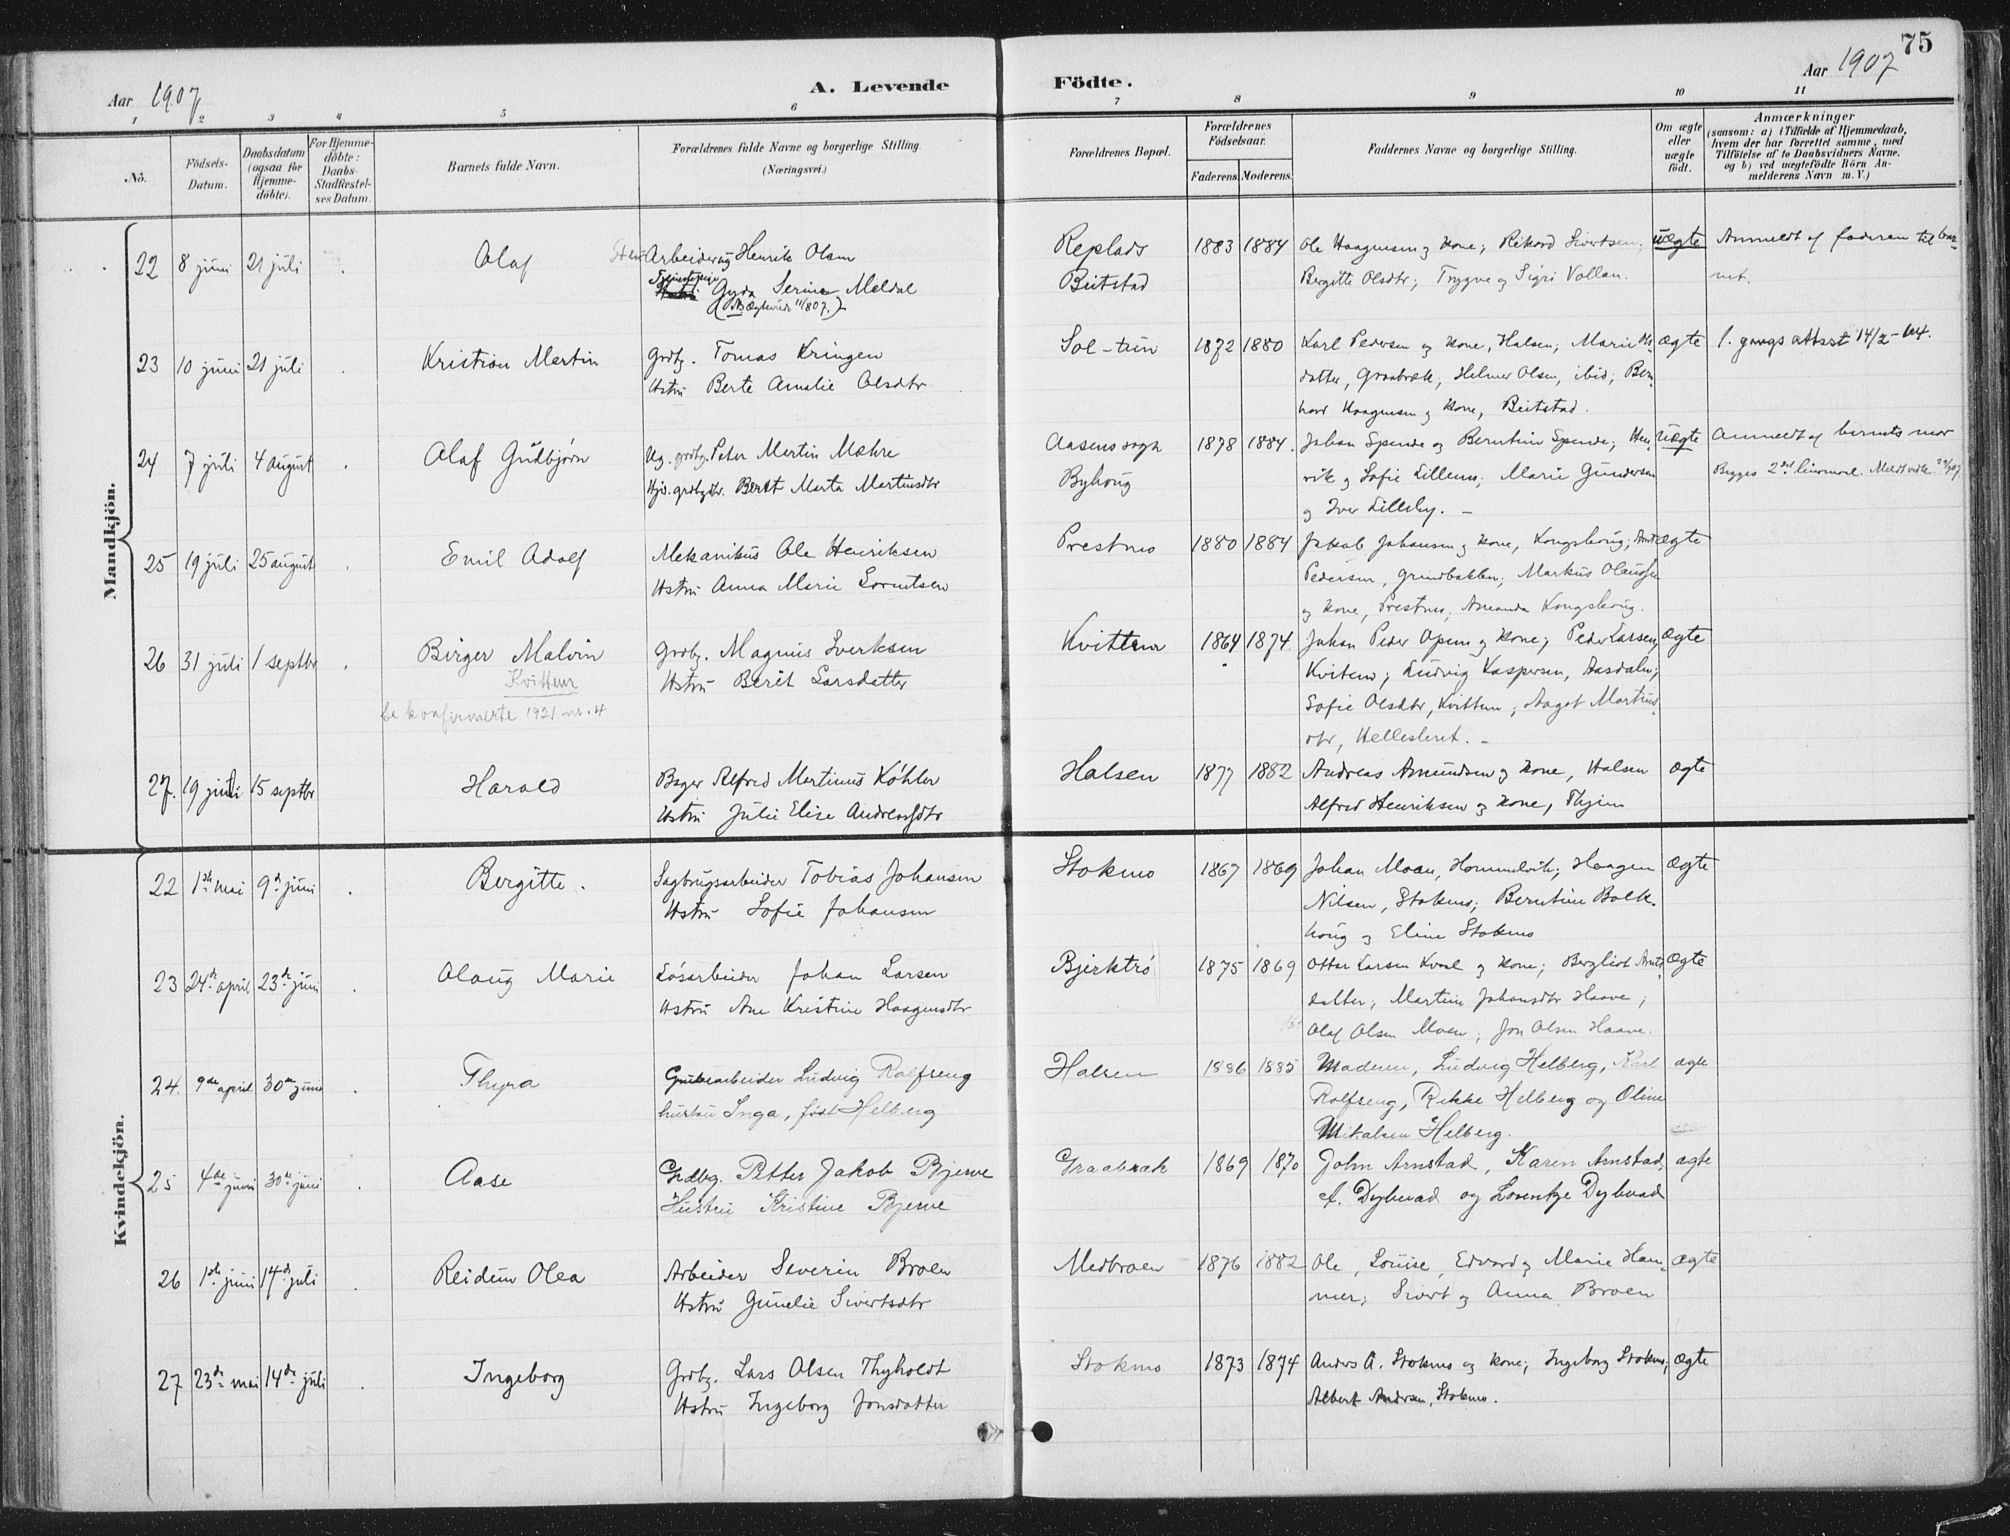 75
Aar 1907
A. Levende Födte.
Aar 1907
1 2 3 4 5 6 7 8 9 10 11
No.
Födsels-Datum.
Daabsdatum (ogsaa for Hjemme-döbte).
For Hjemme-döbte: Daabs-Stadfæstel-ses Datum.
Barnets fulde Navn.
Forældrenes fulde Navne og borgerlige Stilling.
(Næringsvei.)
Forældrenes Bopæl.
Forældrenes Födselsaar.
Faderens. Moderens.
Faddernes Navne og borgerlige Stilling.
Om ægte eller uægte födt.
Anmærkninger
(saasom: a) i Tilfælde af Hjemmedaab,
hvem der har forrettet samme, med
Tilföielse af to Daabsvidners Navne,
og b) ved uægtefödte Börn An-
melderens Navn m. V.)
Mandkjön.
22 8 juni 21 juli Olaf Arbeider Henrik Olsen
Gyda Serine Meldal
Replads
Beitstad
1883 1884 Ole Haagensen og kone; Rikard Sivertsen;
Bergitte Olsdtr; Trygve og Sigri Vollan.
uægte Anmeldt af faderen til bar-
net.
23 10 juni 21 juli Kristian Martin Grdbr. Tomas Kringen
Hstru Berte Amalie Olsdtr
Sol-tun 1872 1880 Karl Pedersen og kone, Halsen; Marie Ols-
datter, Graabræk, Helmer Olsen, ibid; Bern-
hard Haagensen og kone, Beitstad.
ægte 1. gangs attest 14/2-14.
24 7 juli 4 august Olaf Gudbjørn Ug. grdbr. Peter Martin Mæhre
Hjv. grdbrdtr. Berit Marta Martinsdtr
Aasens sogn
Byhaug
1878 1884. Johan Spende og Berntine Spende; Hen-
rik og Sofie Lillemo; Marie Gundersen
og Iver Lilleby. -
uægte Anmeldt af barnets mor
Begges 2det leiermaal.
25 19 juli 25 august Emil Adolf Mekanikus Ole Henriksen
Hstru Anna Marie Lorntsen
Prestmo 1880 1884 Jakob Johansen og kone, Kongshaug;
Pedersen, Grindbakken; Markus Olausen
og kone, Prestmo, Amanda Kongshaug.
ægte
26 31 juli 1 septbr Birger Malvin Grdbr. Magnus Sverksen
Kvittem
Hstru Berit Larsdatter
konfirmerte 1921 nr. 4
Kvittem 1864 1874. Johan Peder Opem og kone; Peder Larsen,
Kvitem; Ludvig Kaspersen, Aasdalen;
Sofie Olsdtr, Kvittem; Aaget Martins-
dtr, Hellesteret. -
ægte
27. 19 juni 15 septbr Harald Bager Alfred Martinus Köhler
Hstru Julie Elise Andreasdtr
Halsen 1877 1882 Andreas Amundsen og kone, Halsen
Alfred Henriksen og kone, Thjem
ægte
Kvindekjön.
22 1ste mai 9de juni Bergitte. Sagbrugsarbeider Tobias Johansen
Hstru Sofie Johansen
Stokmo 1867 1869 Johan Moan, Hommelvik; Haagen
Nilsen, Stokmo; Berntine Balk-
haug og Eline Stokmo
ægte
23 24de april 23de juni Olaug Marie Løsarbeider Johan Larsen
Hstru Ane Kristine Haagensdtr
Bjerktrø 1875 1869 Ottar Larsen Kvaal og kone; Bergliot Arnts-
datter; Martine Johansdtr Haave;
Olaf Olsen Moen; Jon Olsen Haave.
ægte
24. 9de april 30te juni Thyra Grubearbeider Ludvig Rolfseng
hustru Inga, født Helberg
Halsen 1886 1885 Moderen, Ludvig Helberg, Karl
Rolfseng, Rikke Helberg og Oline
Mikalsen Helberg.
ægte
25 4de juni 30te juni Aase Grdbg. Petter Jakob Bjerve
Hustru Kristine Bjerve
Graabræk 1869 1870 John Arnstad, Karen Arnstad,
A. Dybvad og Lorentze Dybvad
ægte
26 1ste juni 14de juli Reidun Olea Arbeider Severin Broen
Hstru Gunelie Sivertsdtr
Medbroen 1876 1882 Ole, Louise, Edvard og Marie Ham-
mer; Sivert og Anna Broen
ægte
27 23de mai 14de juli Ingeborg Grdbr. Lars Olsen Thyholdt
Hstru Ingeborg Jonsdatter
Stokmo 1873 1874 Anders A. Stokmo og kone; Ingeborg Stokmo;
Albert Andersen, Stokmo.
ægte